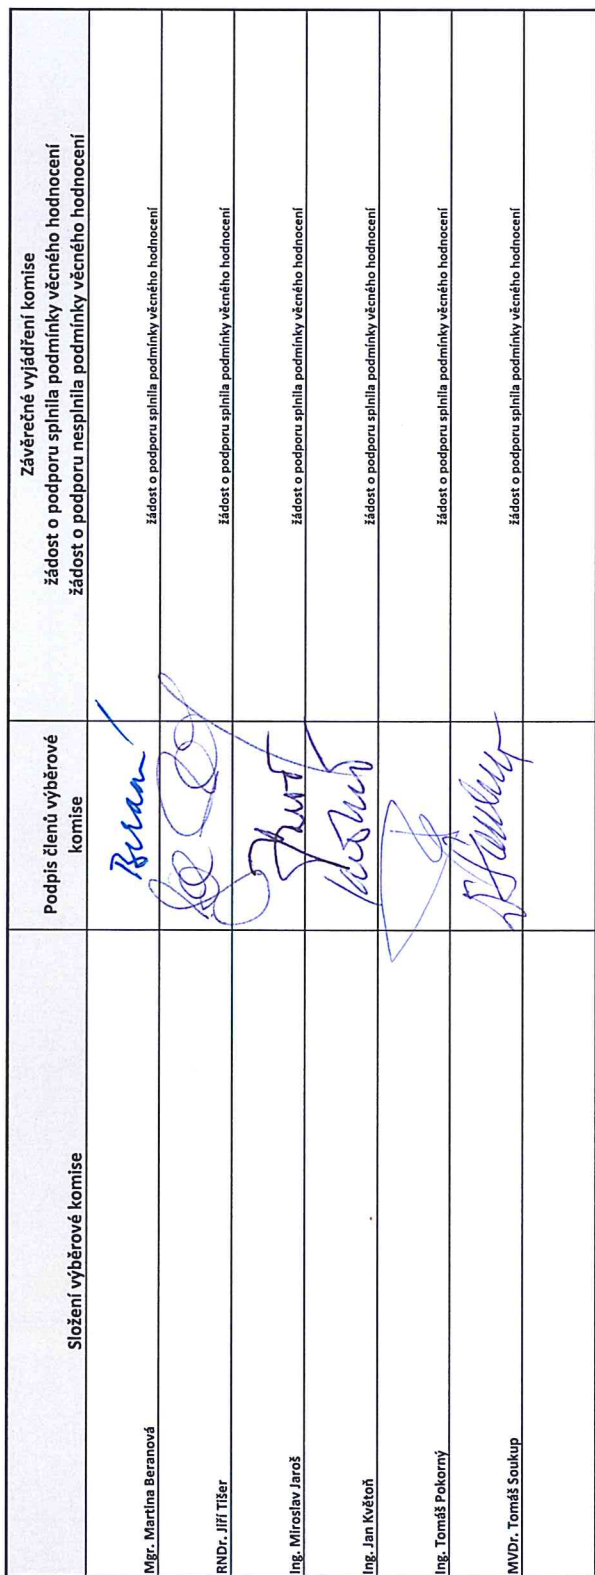 Složení výběrové komise
Podpis členů výběrové
komise
Závěrečné vyjádření komise
žádost o podporu splnila podmínky věcného hodnocení
žádost o podporu nesplnila podmínky věcného hodnocení
Mgr. Martina Beranová
žádost o podporu splnila podmínky věcného hodnocení
RNDr. Jiří Tišer
žádost o podporu splnila podmínky věcného hodnocení
Ing. Miroslav Jaroš
žádost o podporu splnila podmínky věcného hodnocení
Ing. Jan Květoň
žádost o podporu splnila podmínky věcného hodnocení
Ing. Tomáš Pokorný
žádost o podporu splnila podmínky věcného hodnocení
MVDr. Tomáš Soukup
žádost o podporu splnila podmínky věcného hodnocení